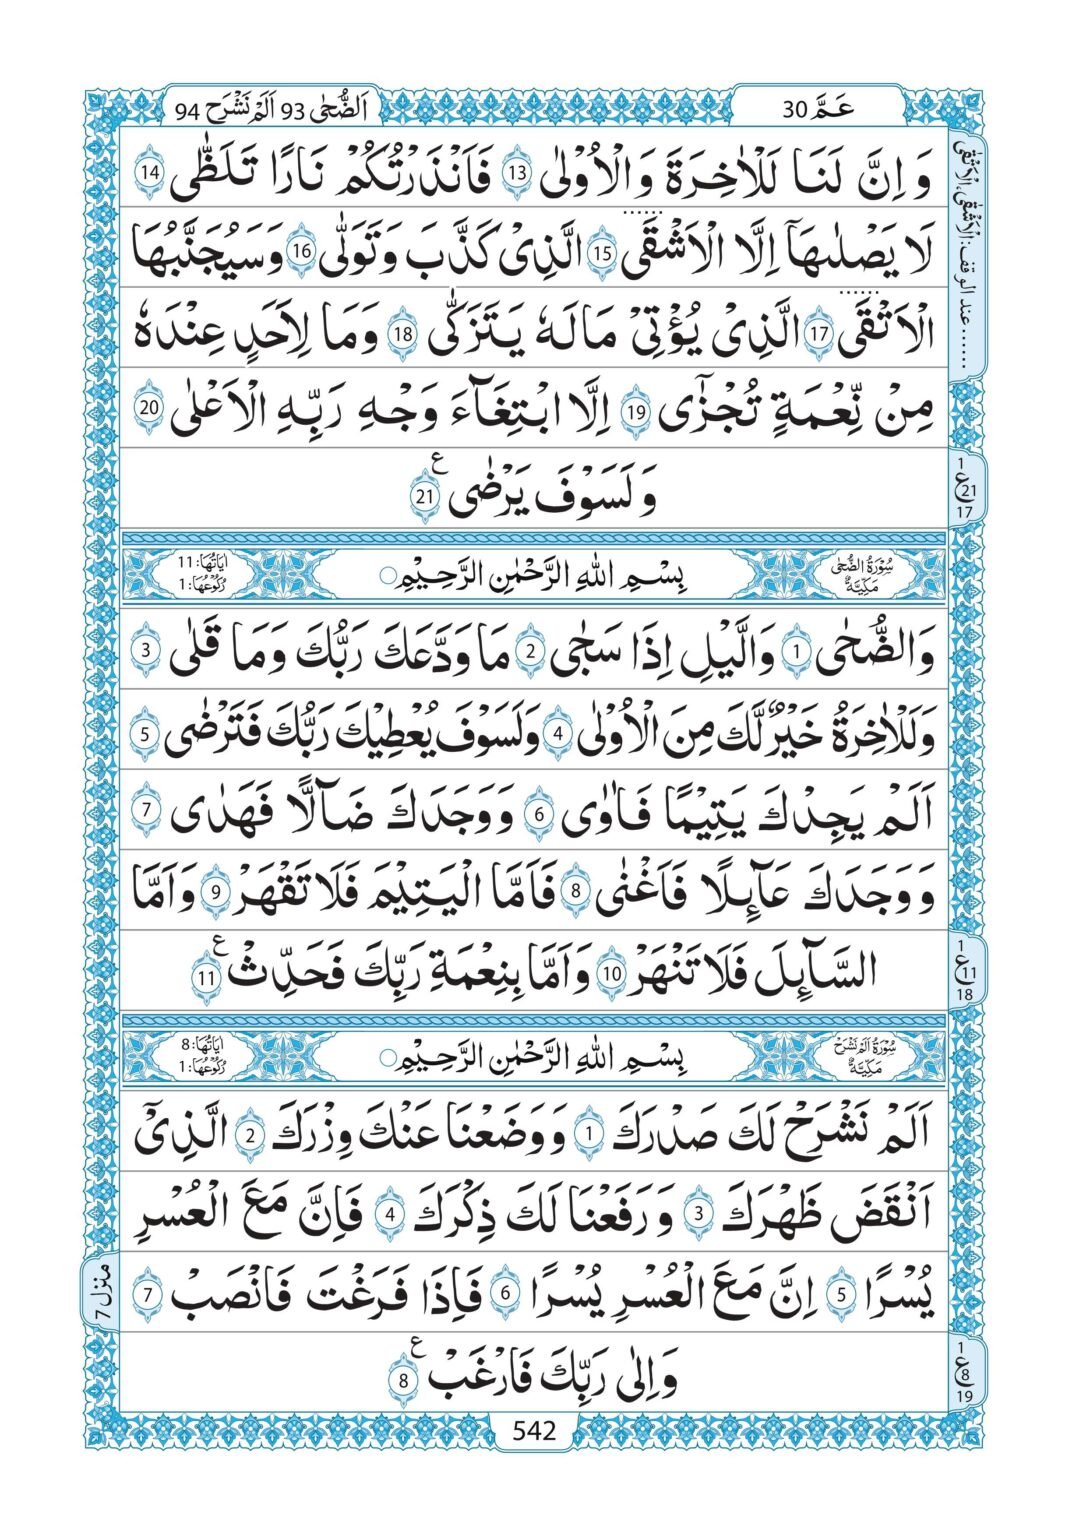 عَمَّ 30
اَلضُّحٰى 93 اَلَمْ نَشْرَح 94
وَ اِنَّ لَنَا لَلْاٰخِرَةَ وَ الْاُوْلٰى 13 فَاَنْذَرْتُكُمْ نَارًا تَلَظّٰى 14
لَا يَصْلٰىهَاۤ اِلَّا الْاَشْقَى 15 الَّذِىْ كَذَّبَ وَ تَوَلّٰى 16 وَ سَيُجَنَّبُهَا
الْاَتْقَى 17 الَّذِىْ يُؤْتِىْ مَا لَهٗ يَتَزَكّٰى 18 وَ مَا لِاَحَدٍ عِنْدَهٗ
مِنْ نِّعْمَةٍ تُجْزٰٓى 19 اِلَّا ابْتِغَآءَ وَجْهِ رَبِّهِ الْاَعْلٰى 20
وَ لَسَوْفَ يَرْضٰى 21 ع
...... عند الوقف: اَلْاَشْقٰى، اَلْاَتْقٰى
1
ع 21
17
سُوْرَةُ الضُّحٰى مَكِّيَّةٌ
بِسْمِ اللّٰهِ الرَّحْمٰنِ الرَّحِيْمِ
اٰيَاتُهَا: 11 رُكُوْعُهَا: 1
وَالضُّحٰى 1 وَالَّيْلِ اِذَا سَجٰى 2 مَا وَدَّعَكَ رَبُّكَ وَ مَا قَلٰى 3
وَ لَلْاٰخِرَةُ خَيْرٌ لَّكَ مِنَ الْاُوْلٰى 4 وَ لَسَوْفَ يُعْطِيْكَ رَبُّكَ فَتَرْضٰى 5
اَلَمْ يَجِدْكَ يَتِيْمًا فَاٰوٰى 6 وَ وَجَدَكَ ضَآلًّا فَهَدٰى 7
وَ وَجَدَكَ عَآئِلًا فَاَغْنٰى 8 فَاَمَّا الْيَتِيْمَ فَلَا تَقْهَرْ 9 وَ اَمَّا
السَّآئِلَ فَلَا تَنْهَرْ 10 وَ اَمَّا بِنِعْمَةِ رَبِّكَ فَحَدِّثْ 11 ع
1
ع 11
18
سُوْرَةُ اَلَمْ نَشْرَحْ مَكِّيَّةٌ
بِسْمِ اللّٰهِ الرَّحْمٰنِ الرَّحِيْمِ
اٰيَاتُهَا: 8 رُكُوْعُهَا: 1
اَلَمْ نَشْرَحْ لَكَ صَدْرَكَ 1 وَ وَضَعْنَا عَنْكَ وِزْرَكَ 2 الَّذِىْۤ
اَنْقَضَ ظَهْرَكَ 3 وَ رَفَعْنَا لَكَ ذِكْرَكَ 4 فَاِنَّ مَعَ الْعُسْرِ
يُسْرًا 5 اِنَّ مَعَ الْعُسْرِ يُسْرًا 6 فَاِذَا فَرَغْتَ فَانْصَبْ 7
وَ اِلٰى رَبِّكَ فَارْغَبْ 8 ع
منزل 7
1
ع 8
19
542